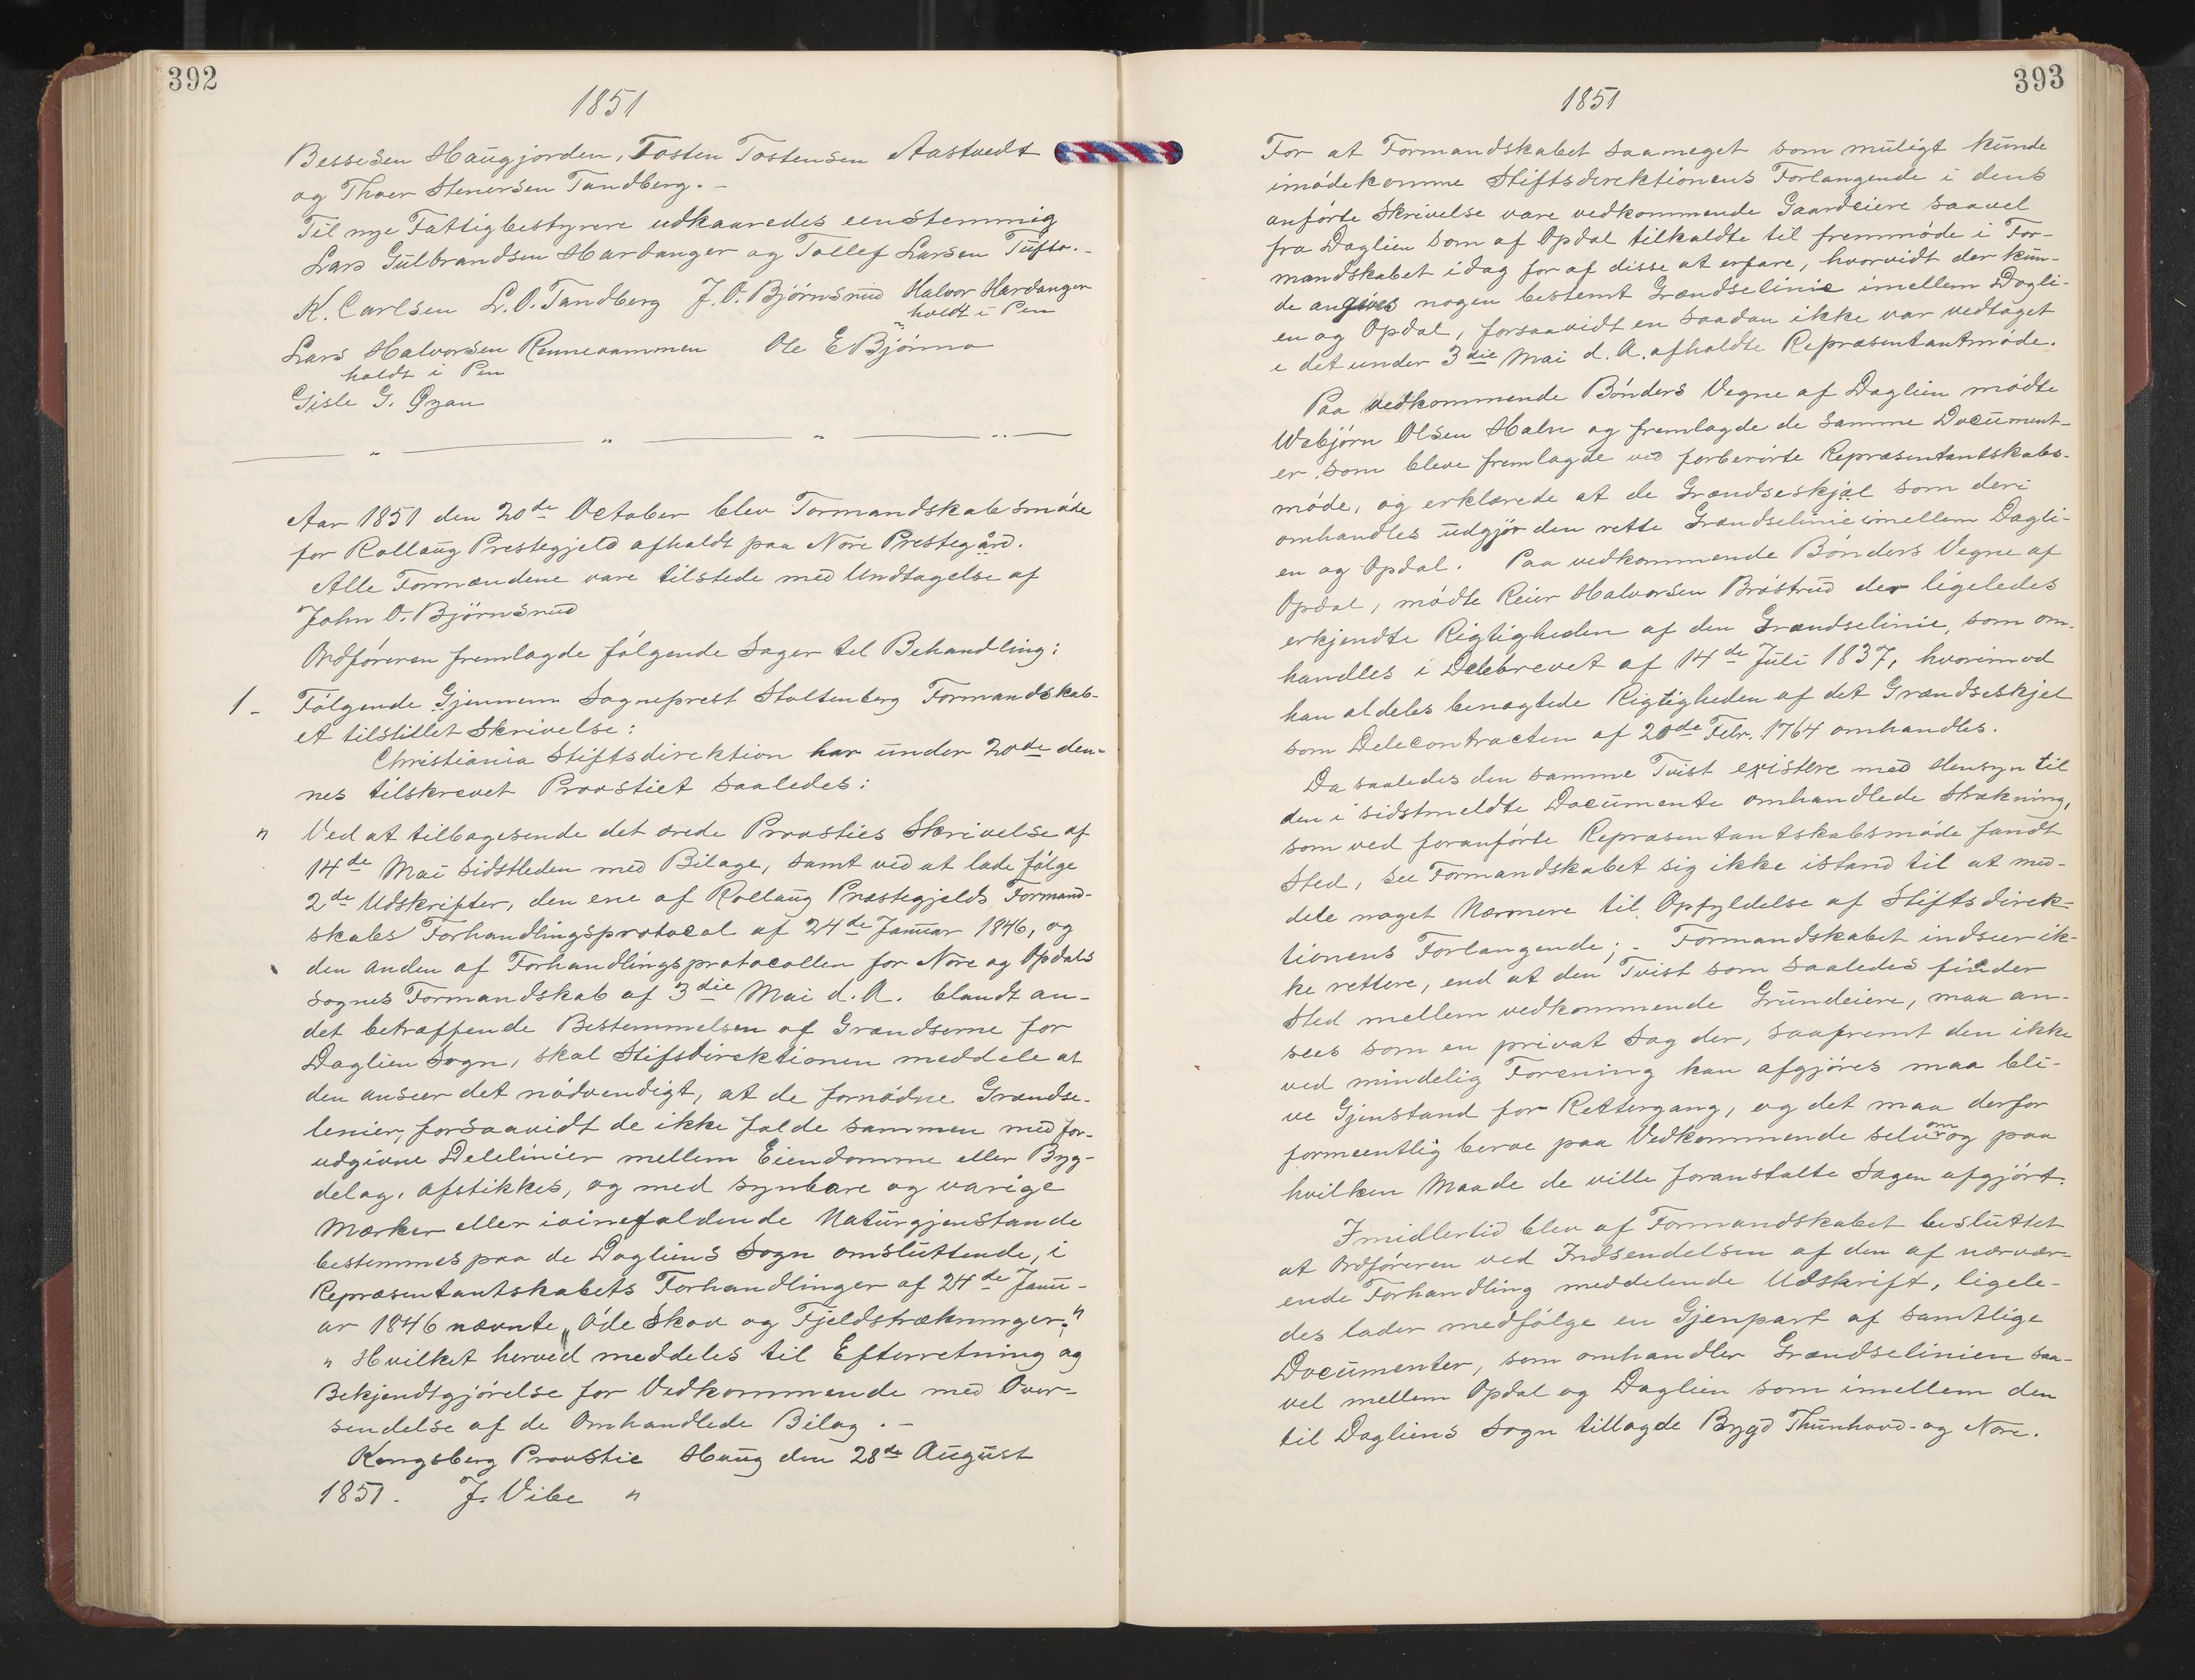 392
1851
Bessesen Haugjorden, Tosten Tostensen Aastvedt
og Thoer Stenersen Tandberg. -
Til nye Fattigbestyrere udkaaredes eenstemmig
Lars Gulbrandsen Hardanger og Tollef Larsen Tufto. -
K. Carlsen L. O. Tandberg J. O. Björnsrud Halvor Hardanger
holdt i Pen
Lars Halvorsen Rennevammen Ole E Björnno
holdt i Pen
Gisle G. Øyan
Aar 1851 den 20de October blev Formandskabsmøde
for Rollaug Prestegjeld afholdt paa Nore Prestegård.
Alle Formændene vare tilstede med Undtagelse af
John O. Björnsrud
Ordföreren fremlagde fölgende Sager til Behandling:
1 - Fölgende Gjennem Sogneprest Stoltenberg Formandskab-
et tilstillet Skrivelse:
Christiania Stiftsdirektion har under 20de den-
nes tilskrevet Provstiet saaledes:
" Ved at tilbagesende det ærede Provsties Skrivelse af
14de Mai sidstleden med Bilage, samt ved at lade fölge
2de Udskrifter, den ene af Rollaug Præstegjelds Formand-
skabs Forhandlingsprotocol af 24de Januar 1846, og
den anden af Forhandlingsprotocollen for Nore og Opdals
Sognes Formandskab af 3die Mai d. A. blandt an-
det betræffende Bestemmelsen af Grændserne for
Daglien Sogn, skal Stifsdirektionen meddele at
den anseer det nödvendigt, at de fornödne Grændse-
lenier, forsaavidt de ikke falde sammen med for-
udgivne Delelinier mellem Eiendomme eller Byg-
delag, afstikkes, og med synbare og varige
Mærker eller iöinefaldende Naturgjenstande
bestemmes paa de Dagliens Sogn omsluttende, i
Repræsentantskabets Forhandlinger af 24de Janu-
ar 1846 nævnte „Öde Skov og Fjeldstrækninger."
" Hvilket herved meddeles til Efterretning og
Bekjendtgjörelse for Vedkommende med Over-
sendelse af de Omhandlede Bilag . -
Kongsberg Provstie Haug den 28de August
1851. J. Vibe "
393
1851
For at Formandskabet saameget som muligt kunde
imödekomme Stiftsdirektionens Forlangende i dens
anförte Skrivelse vare vedkommende Gaardeiere saavel
fra Daglien som af Opdal tilkaldte til fremmöde i For-
mandskabet idag for af disse at erfare, hvorvidt der kun-
de angives nogen bestemt Grændselinie imellem Dagli-
en og Opdal, forsaavidt en saadan ikke var vedtaget
i det under 3die Mai d. A. afholdte Repræsentantmöde.
Paa vedkommende Bönders Vegne af Daglien mödte
Asbjörn Olsen Haln og fremlagde de samme Document-
er som bleve fremlagde ved forberörte Repræsentantskabs-
möde, og erklærede at de Grændseskjæl som deri
omhandles udgjör den rette Grændselinie imellem Dagli-
en og Opdal. Paa vedkommende Bönders Vegne af
Opdal, mödte Reier Halvorsen Bröstrud der ligeledes
erkjendte Rigtigheden af den Grændselinie, som om-
handles i Delebrevet af 14de Juli 1837, hvorimod
han aldeles benægtede Rigtigheden af det Grændseskjel
som Delecontracten af 20de Febr. 1764 omhandles.
Da saaledes den samme Tvist existere med Hensyn til
den i sidstmeldte Documente omhandlede Strækning,
som ved foranförte Repræsentantskabsmöde fandt
Sted, see Formandskabet sig ikke istand til at med-
dele noget Nærmere til Opfyldelse af Stiftsdirek-
tionens Forlangende; - Formandskabet indseer ik-
ke rettere, end at den Tvist som saaledes finder
Sted mellem vedkommende Grundeiere, maa an-
sees som en privat Sag der, saafremt den ikke
ved mindelig Forening kan afgjöres maa bli-
ve Gjenstand for Rettergang, og det maa derfor
formeentlig beroe paa Vedkommende selv om og paa
hvilken Maade de ville foranstalte Sagen afgjört.
Imidlertid blev af Formandskabet besluttet
at Ordföreren ved Indsendelsen af den af nærvær-
ende Forhandling meddelende Udskrift, ligele-
des lader medfölge en Gjenpart af samtlige
Documenter, som omhandler Grændselinien saa-
vel mellem Opdal og Daglien som imellem den
til Dagliens Sogn tillagde Bygd Thunhovd- og Nore.